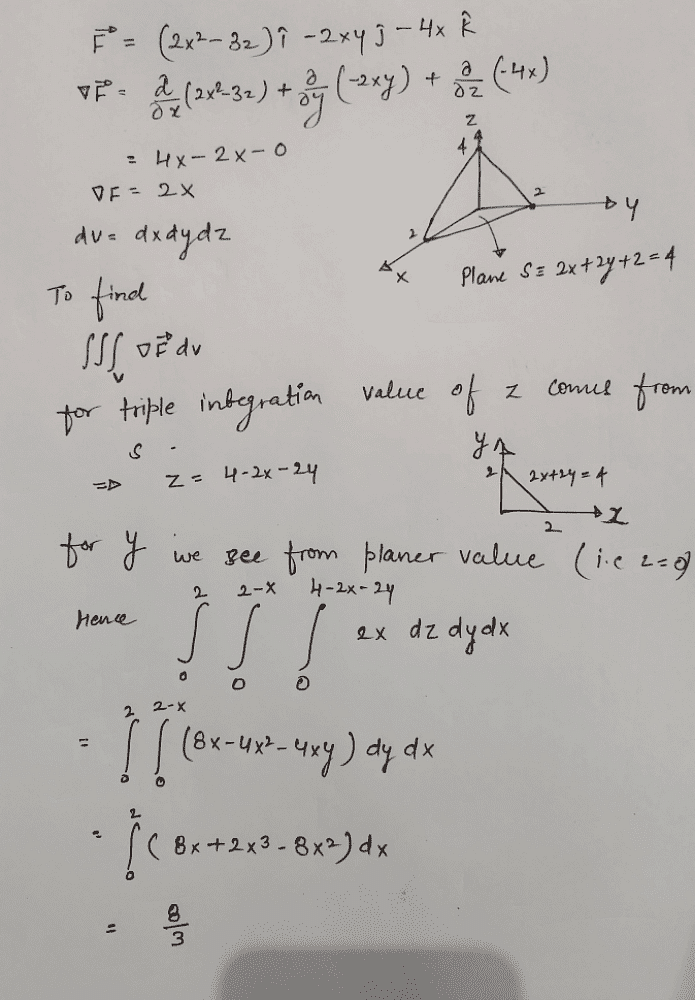 F⃗ = (2x²-3z) î - 2xy ĵ - 4x k̂
∇F⃗ = ∂/∂x (2x²-3z) + ∂/∂y (-2xy) + ∂/∂z (-4x)
= 4x - 2x - 0
∇F = 2x
dv = dxdydz
z
4
2
y
2
x
Plane S ≡ 2x+2y+2=4
To find
∭_V ∇F⃗ dv
for triple integration value of z comes from
S
⇒ z = 4-2x-2y
y
2
2x+2y=4
2
x
for y we see from planer value (i.e z=0)
Hence ∫₀² ∫₀^(2-x) ∫₀^(4-2x-2y) 2x dz dy dx
= ∫₀² ∫₀^(2-x) (8x-4x²-4xy) dy dx
= ∫₀² (8x+2x³-8x²) dx
= 8/3